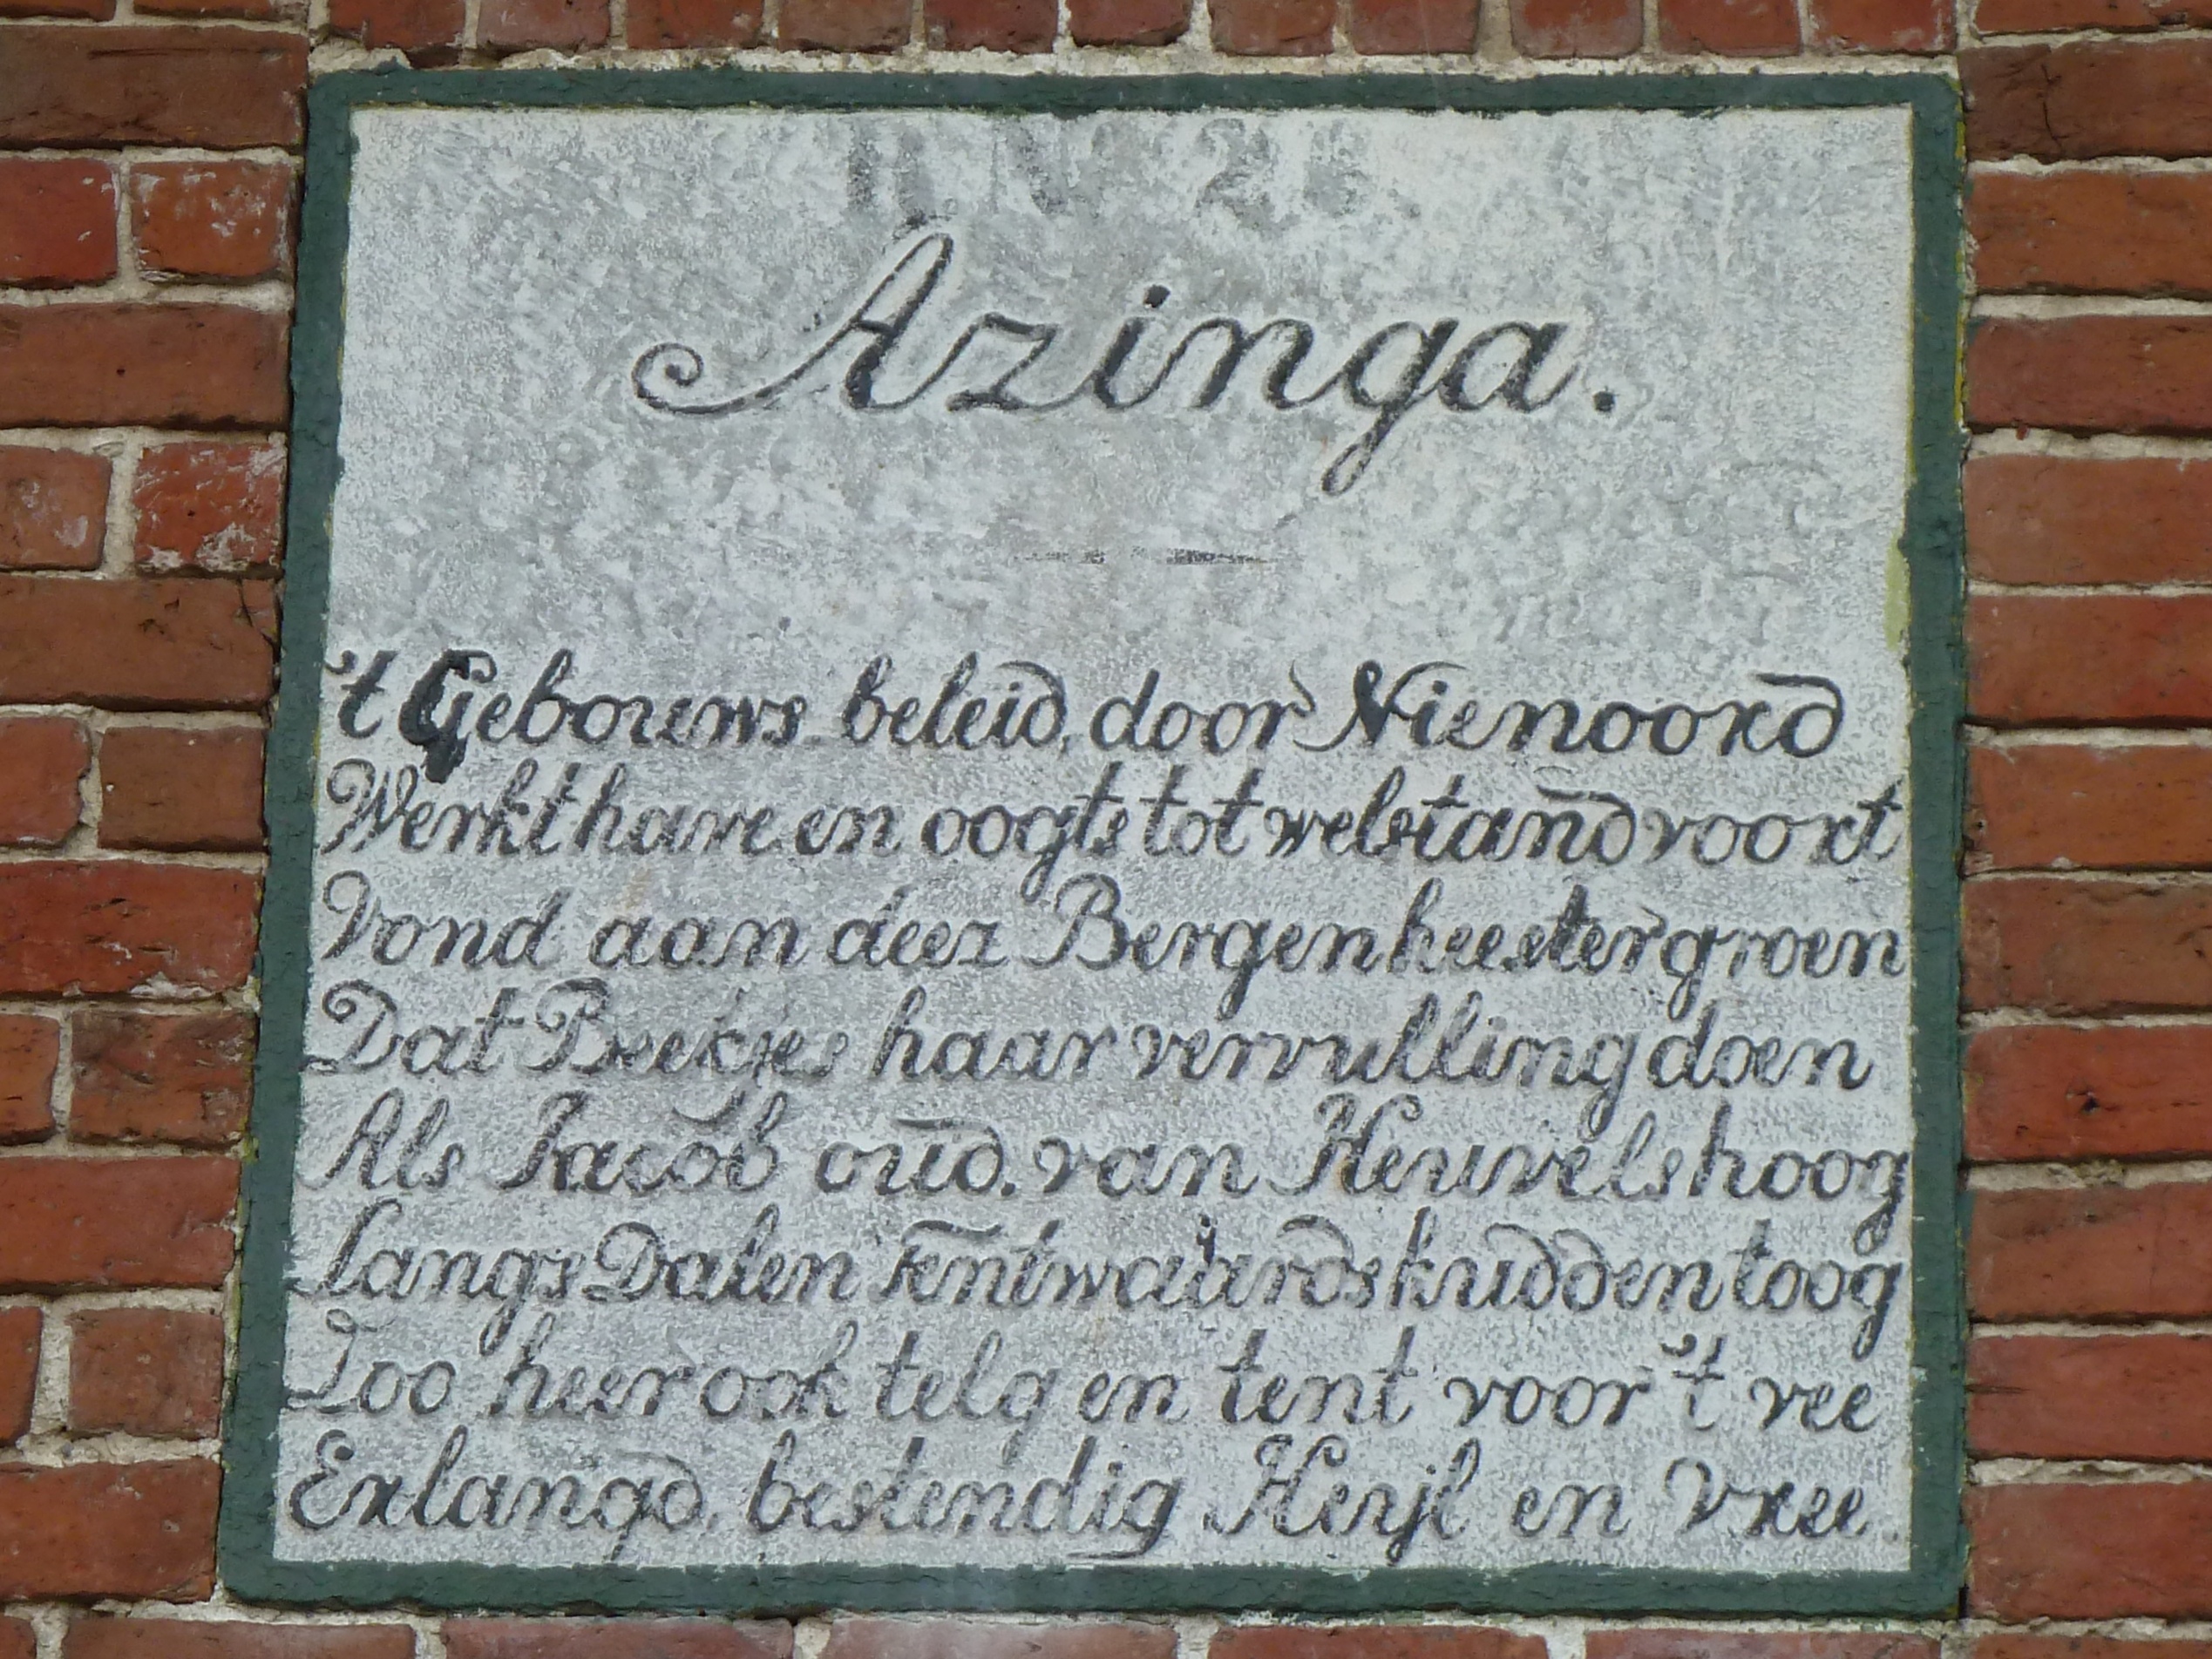 Azinga.
't Gebouws beleid, door Nienoord
Werkt have en oogts tot welstand voort
Vond aan deez Bergen heester groen
Dat Beekjes haar vervulling doen
Als Jacob oud. van Heuvels hoog
Langs Dalen Tentwaards kudden toog
Zoo heer ook telg en tent voor 't vee
Erlangd, bestendig Heijl en Vree.